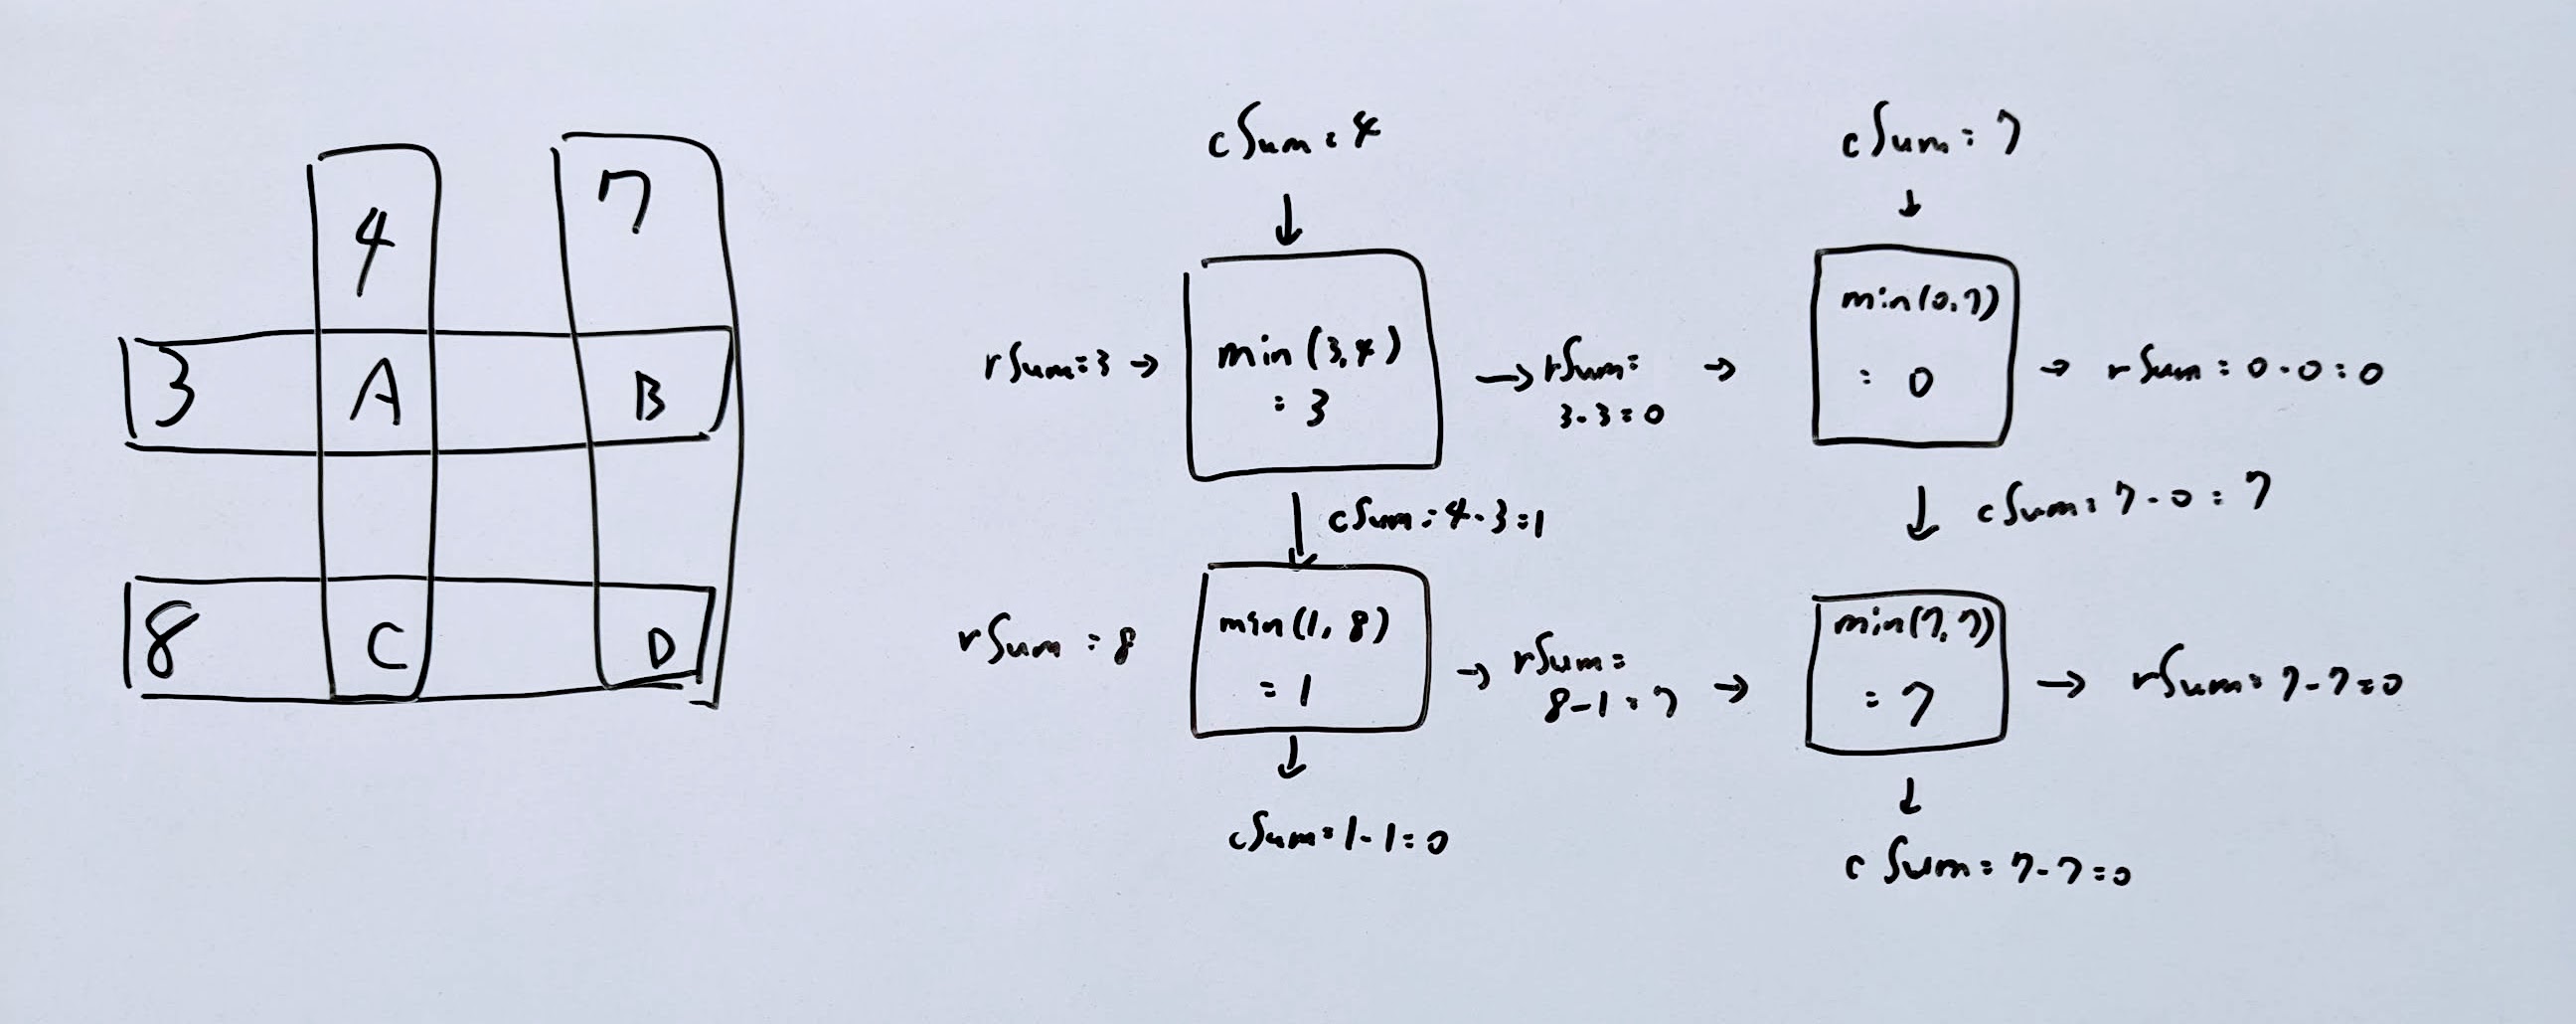 4
7
3
A
B
8
C
D
cSum = 4
cSum = 7
rSum = 3 →
min (3,4)
= 3
→ rSum =
3-3=0
→
min(0,7)
= 0
→ rSum = 0-0=0
cSum = 4-3=1
cSum = 7-0=7
rSum = 8
min(1, 8)
= 1
→ rSum =
8-1=7
→
min(7,7)
= 7
→ rSum = 7-7=0
cSum = 1-1=0
cSum = 7-7=0